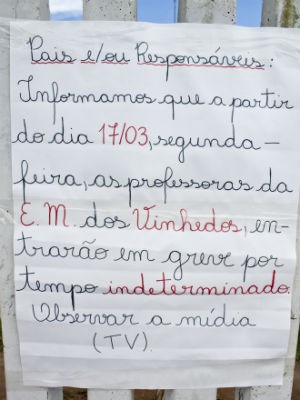 Pais e/ou Responsáveis:
Informamos que a partir
do dia 17/03, segunda-
feira, as professoras da
E.M. dos Vinhedos, en-
trarão em greve por
tempo indeterminado.
Observar a mídia
(TV).